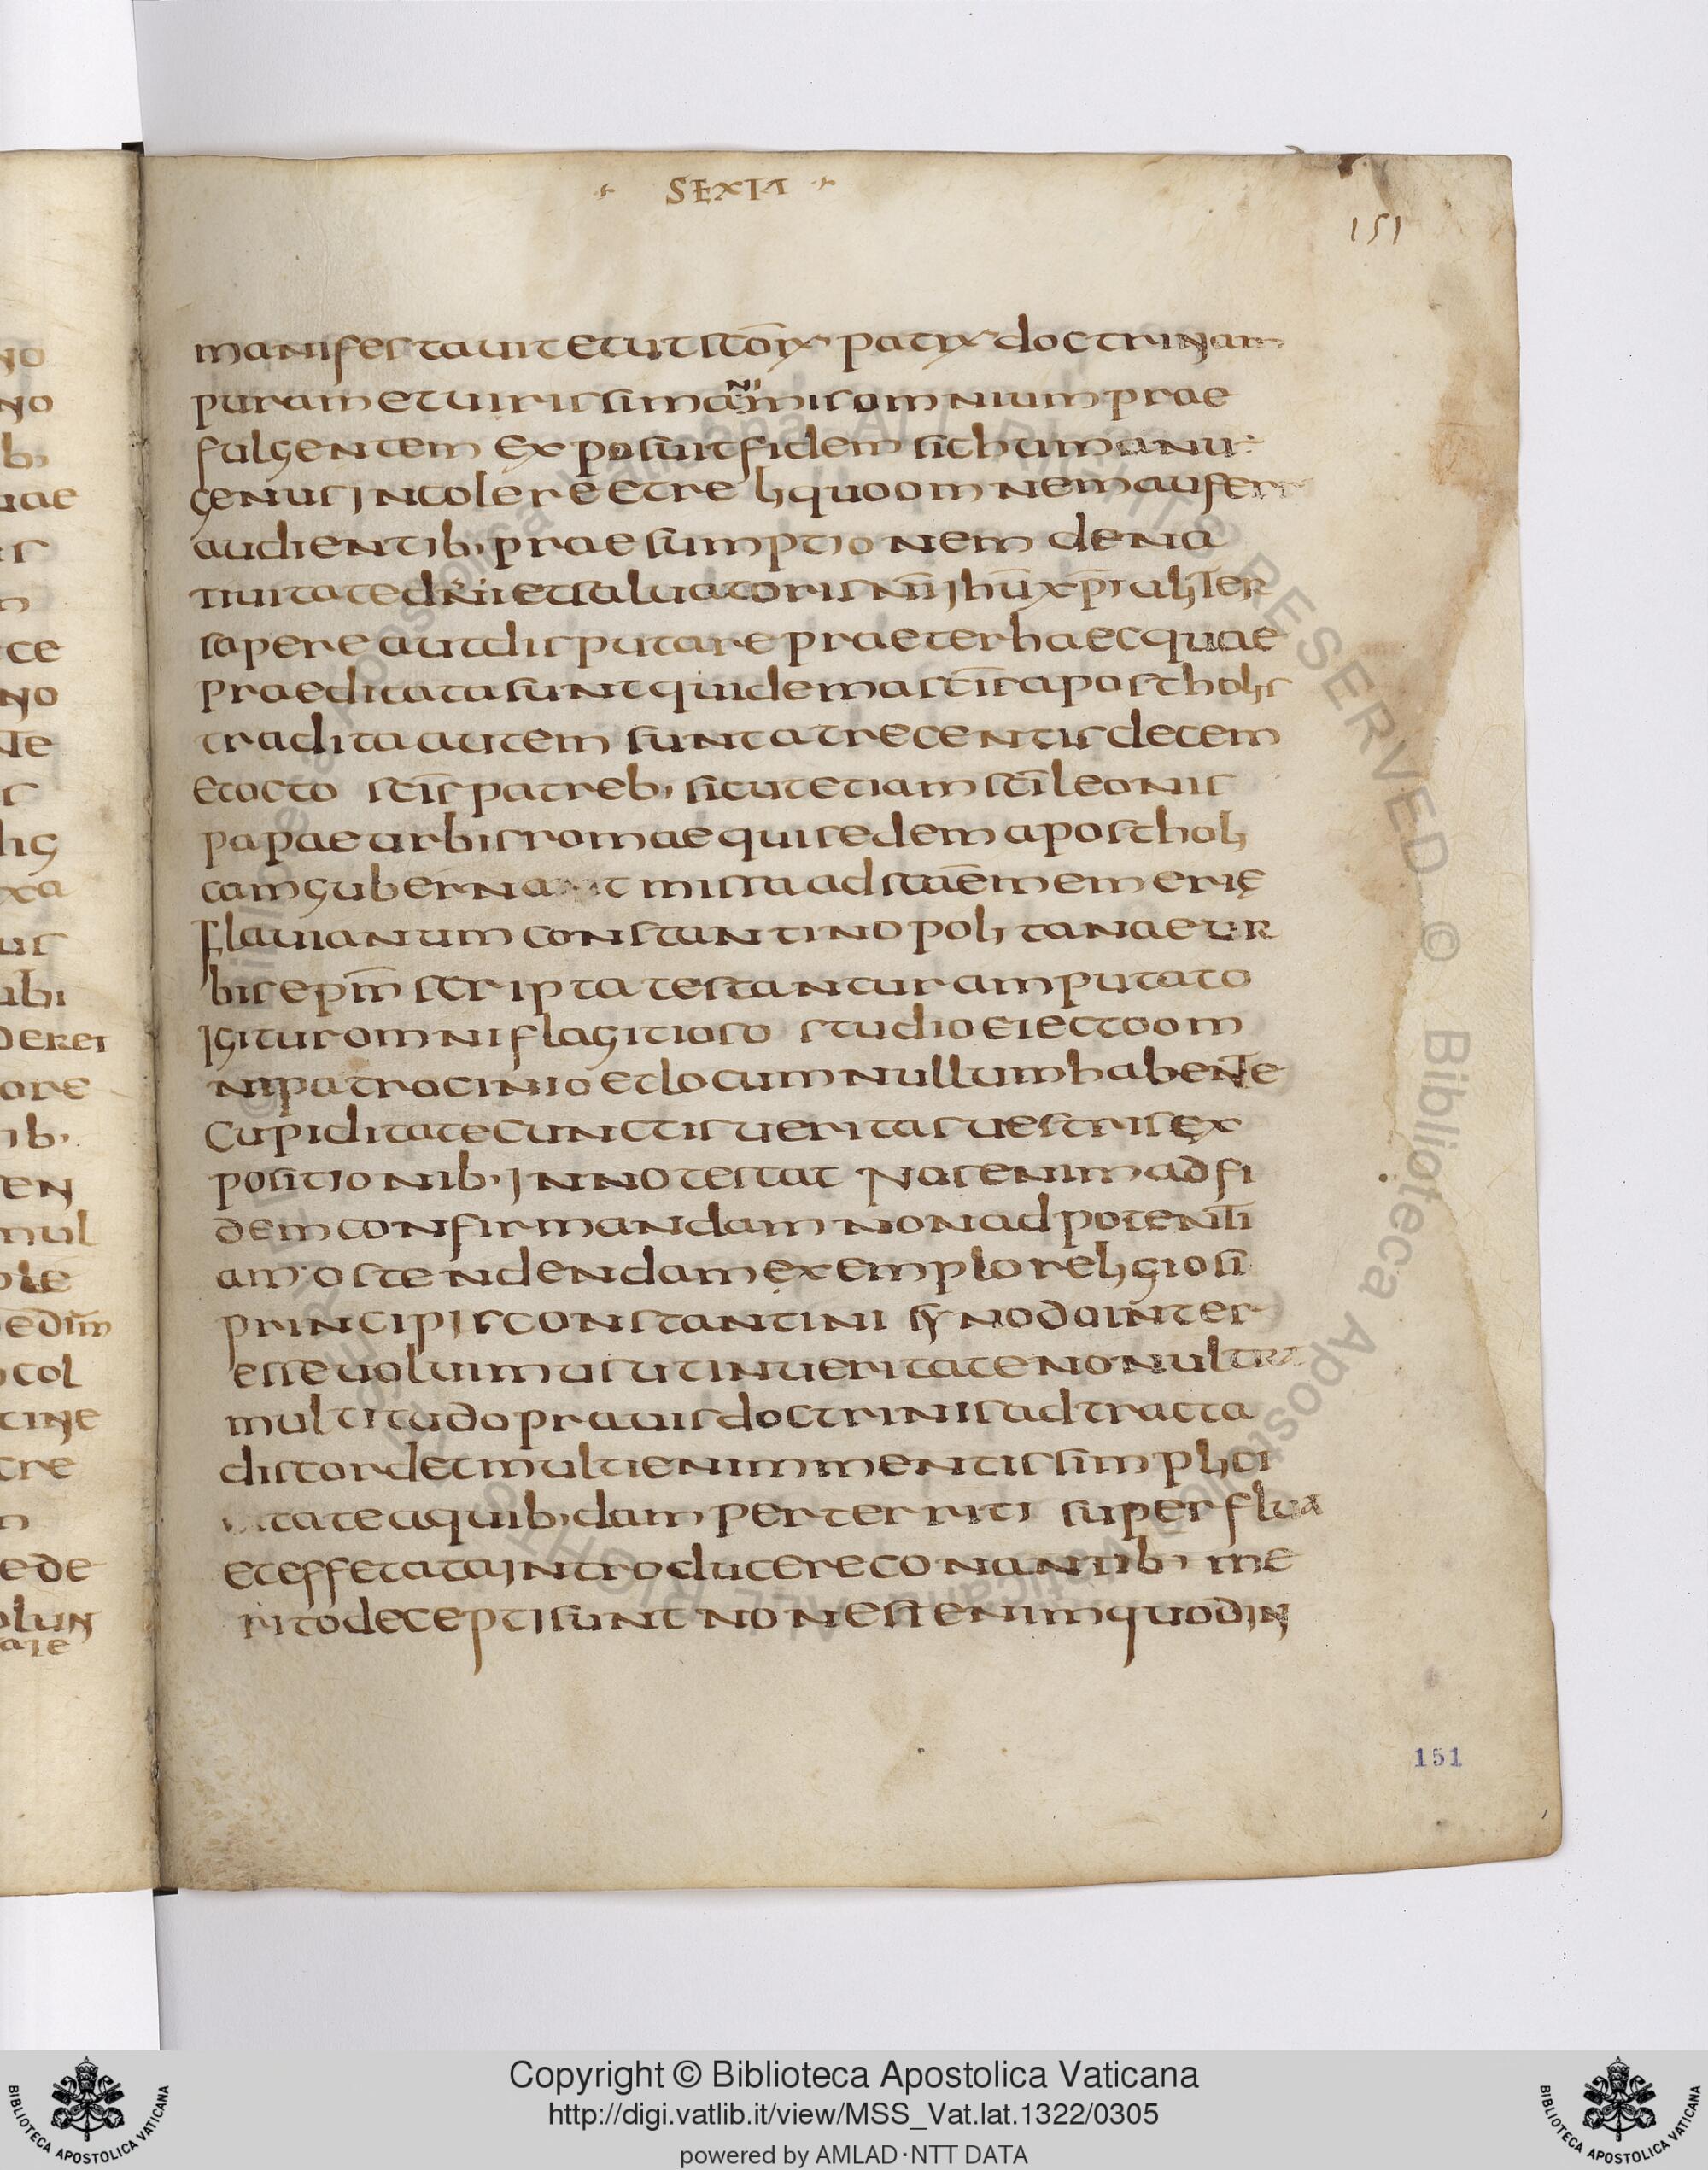 SEXTA
151
manifestauit et ut scōrx patrx doctrinam
puram et uirissima ni mis omnium prae
fulgentem exposuit fidem sic humanu
genus intolere et reliquo omnem auferr
audientib, praesumptionem de na
tiuitate dn̄i et saluatoris nī ihū xp̄i aliter
sapere aut disputare praeter haec quae
praeditata sunt quidem a sc̄is apostholis
tradita autem sunt a trecentis decem
et octo sc̄is patreb, sicut etiam sc̄i leonis
papae urbis romae qui sedem apostholi
cam gubernat missa ad sc̄ae memerię
flauianum constantinopolitanae ur
bis ep̄m scripta testantur amputato
igitur omni flagitioso studio eiecto om
ni patrocinio et locum nullum habente
cupiditate cunctis ueritas uestris ex
positionib, innotescat Nos enim ad fi
dem confirmandam non ad potenti
am ostendendam exemplo religiosi
principis constantini synodo inter
esse uoluimus ut inueritate non ultra
multitudo prauis doctrinis adtracta
discordet multi enim mentis simplici
tate a quib,dam perterriti superflua
et effetata introducere conantib, me
rito decepti sunt non est enim quod in
151
no
no
b,
uae
ce
no
te
lig
xa
us
ubi
ore
ib,
en
mul
ple
col
tine
cre
ede
lun
Copyright © Biblioteca Apostolica Vaticana
http://digi.vatlib.it/view/MSS_Vat.lat.1322/0305
powered by AMLAD·NTT DATA
BIBLIOTECA APOSTOLICA VATICANA
BIBLIOTECA APOSTOLICA VATICANA